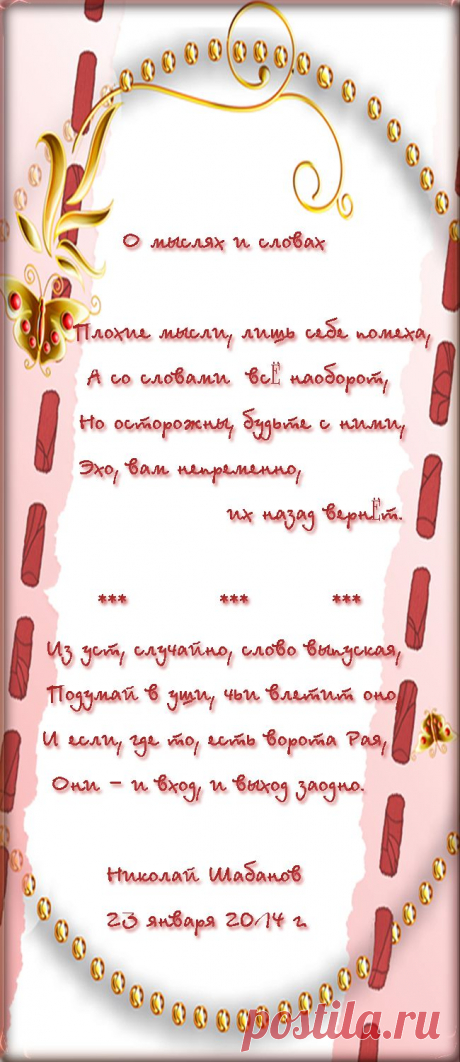 О мыслях и словах
Плохие мысли, лишь себе помеха,
А со словами всЁ наоборот,
Но осторожны, будьте с ними,
Эхо, вам непременно,
их назад вернЁт.
*** *** ***
Из уст, случайно, слово выпуская,
Подумай в уши, чьи влетит оно,
И если, где то, есть ворота Рая,
Они – и вход, и выход заодно.
Николай Шабанов
23 января 2014 г.
postila.ru